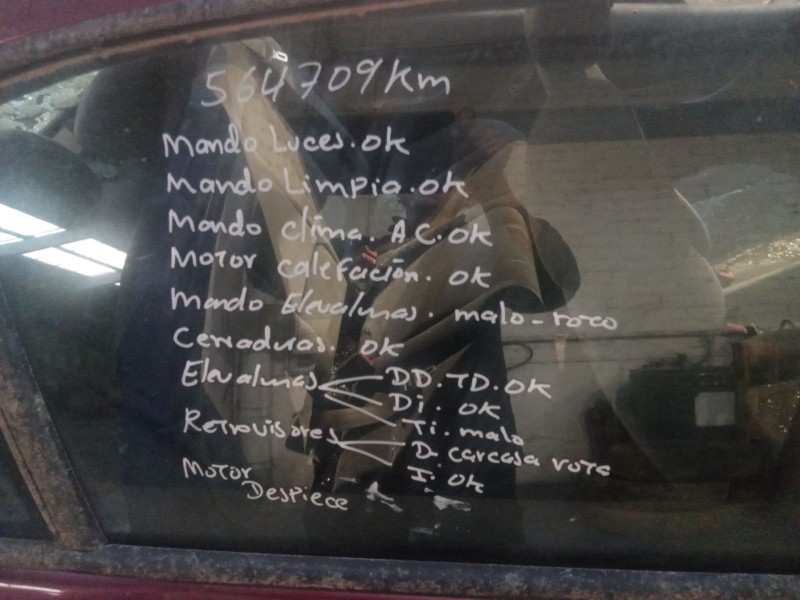 564709km
Mando Luces. ok
Mando Limpia. ok
Mando clima. AC. OK
Motor calefación. ok
Mando Elevalunas. malo-roto
Cerraduras. ok
Elevalunas DD. TD. OK
Di. ok
Ti. malo
Retrovisores D. carcasa rota
I. ok
Motor
Despiece